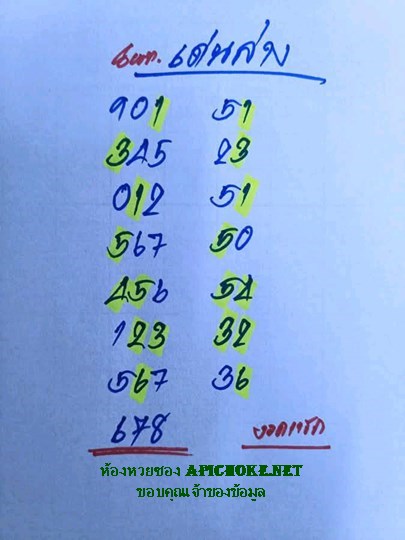 เด่นล่าง
901 51
345 23
012 51
567 50
456 54
123 32
567 36
678 งวดแรก
ห้องหวยซอง APICHOKE.NET
ขอบคุณเจ้าของข้อมูล